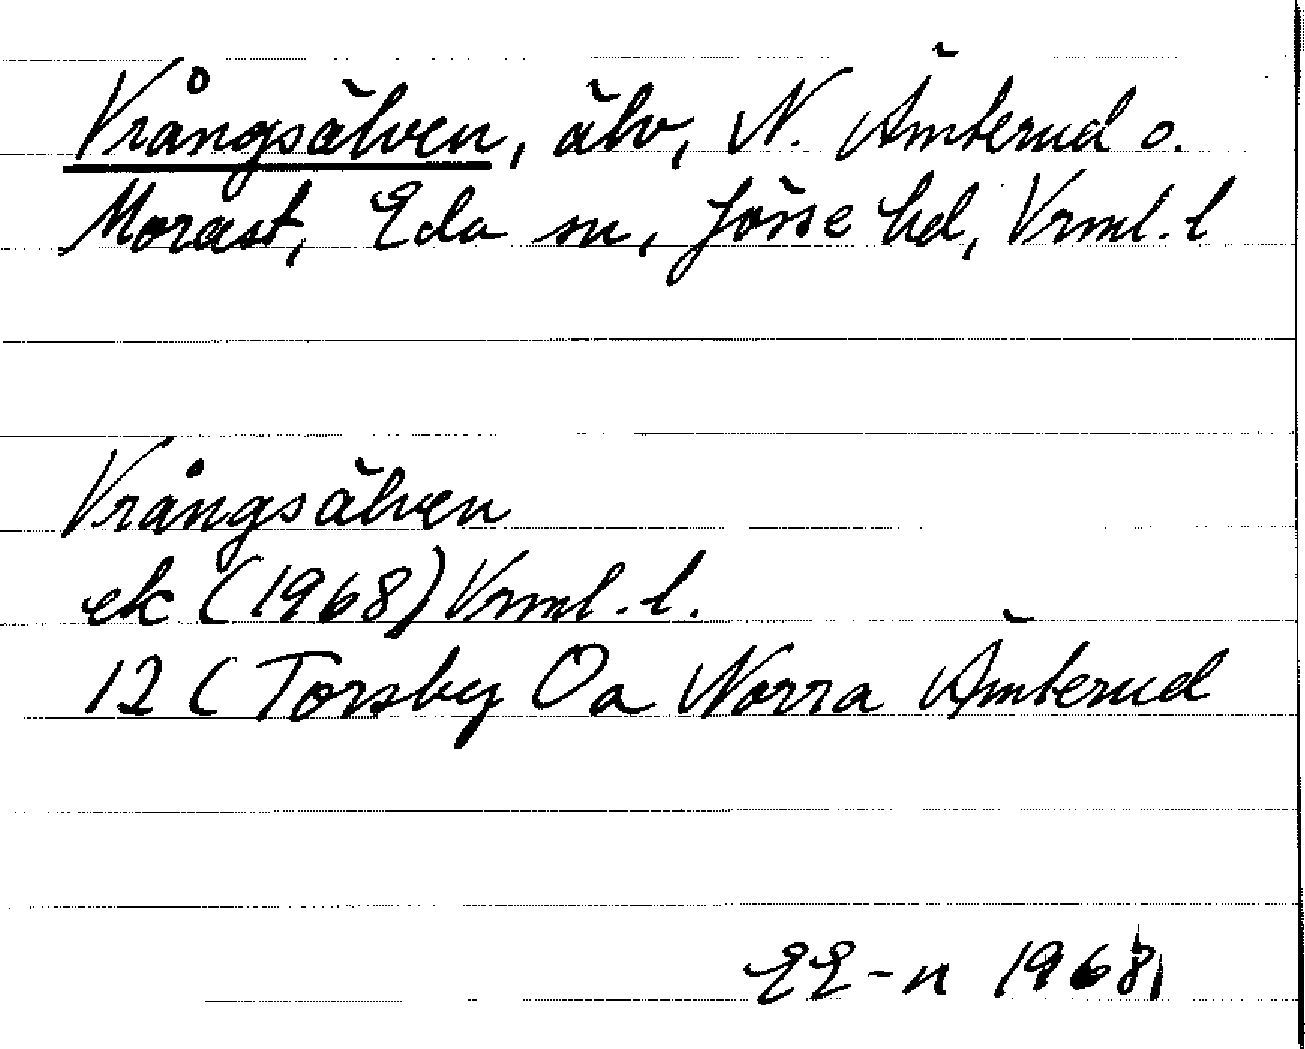 Vrångsälven, älv, N. Ämterud o.
Morast, Eda sn, Jösse hd, Vrml. l
Vrångsälven
ek (1968) Vrml. l.
12 C Torsby Oa Norra Ämterud
EE-n 1968